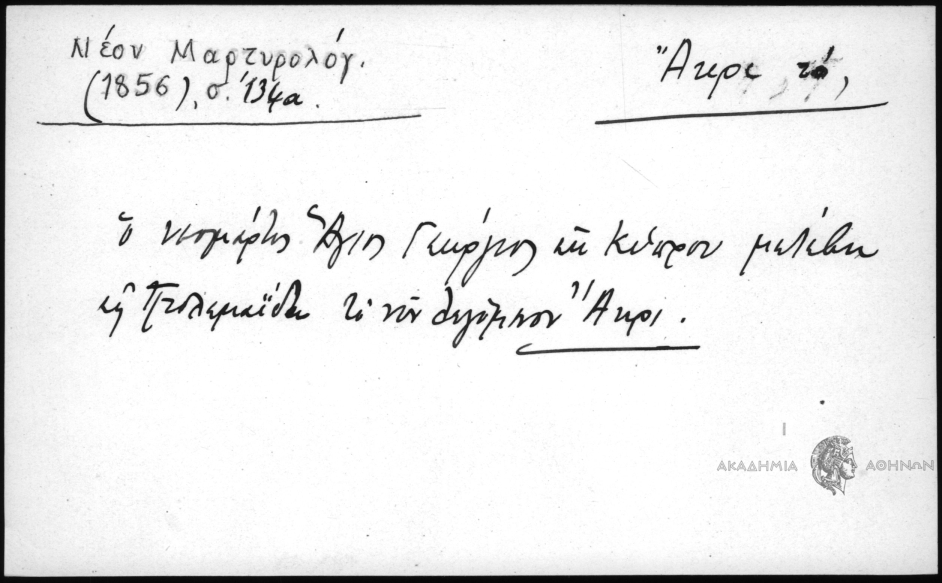 Νέον Μαρτυρολόγ.
(1856), σ. 134α.
Ἄκρε τό,
ὁ νεομάρτυς Ἅγιος Γεώργιος ἐκ Κύπρου μετέβη
εἰς Πτολεμαΐδα τὸ νῦν λεγόμενον Ἄκρι.
ΑΚΑΔΗΜΙΑ ΑΘΗΝΩΝ